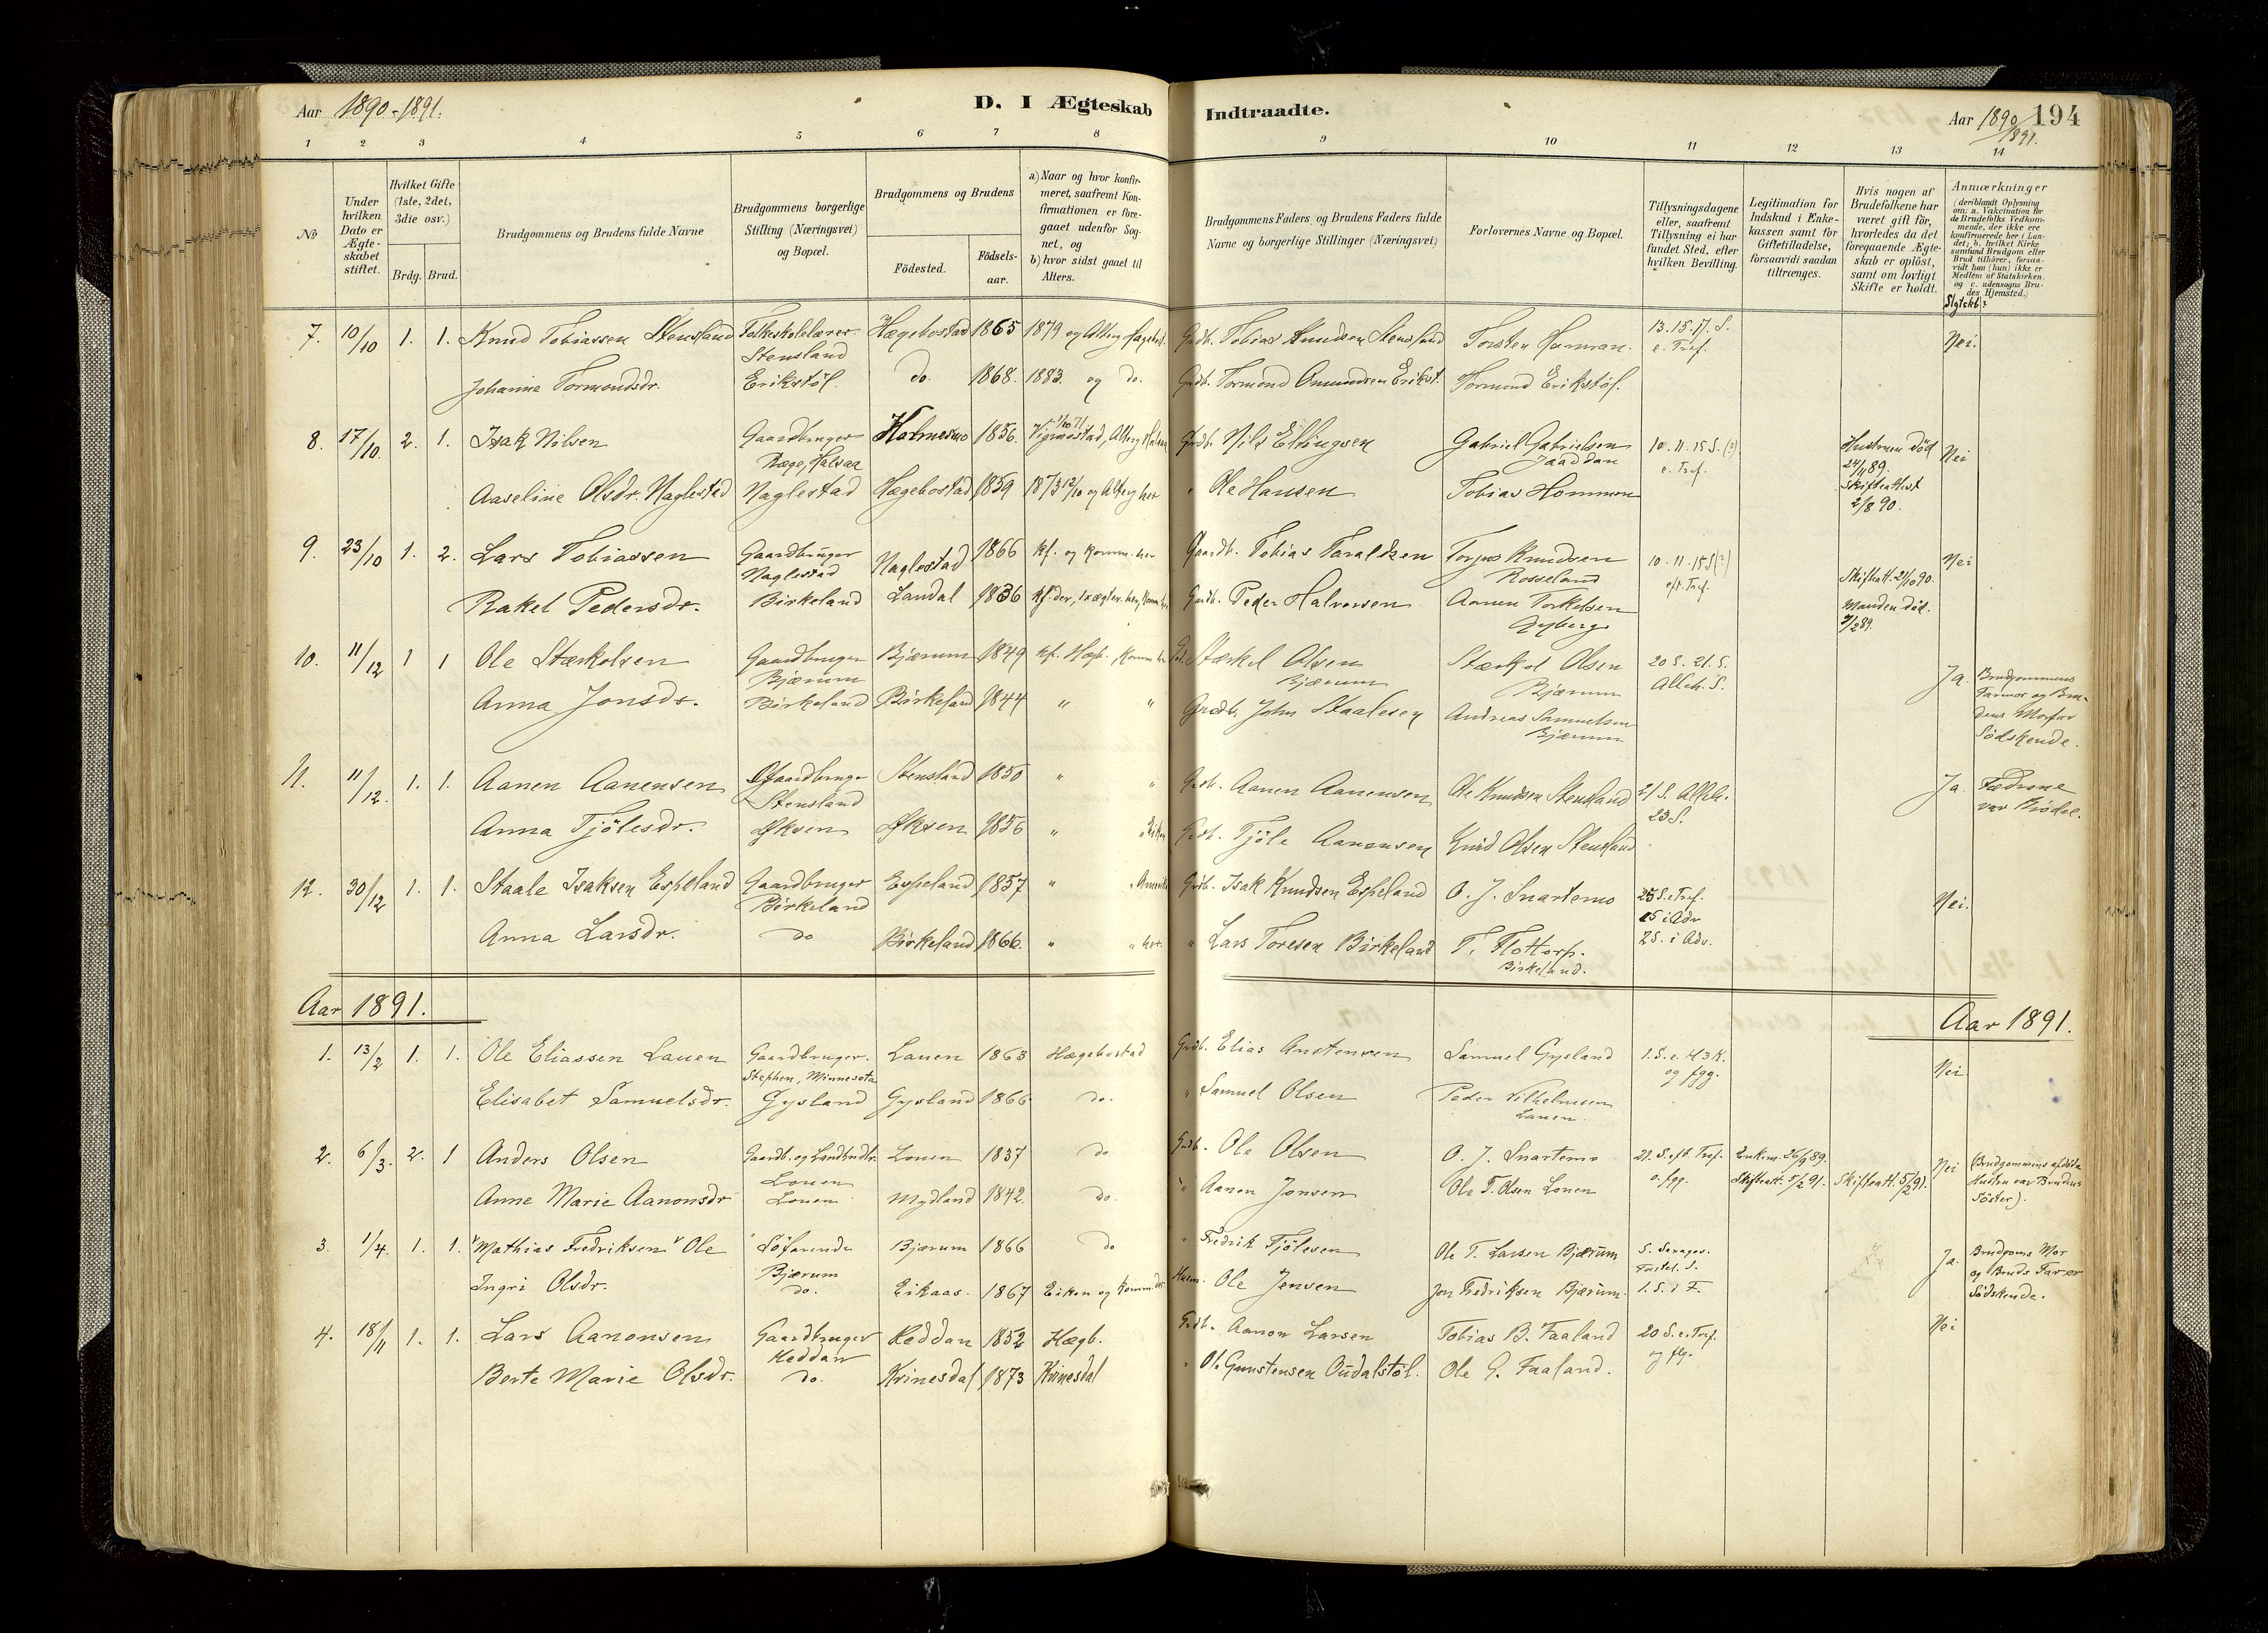 Aar 1890-1891. D. I Ægteskab Indtraadte. Aar 1890/1891. 194
1 2 3 4 5 6 7 8 9 10 11 12 13 14
№
Under hvilken Dato er Ægteskabet stiftet.
Hvilket Gifte (1ste, 2det, 3die osv.)
Brdg. Brud.
Brudgommens og Brudens fulde Navne
Brudgommens borgerlige Stilling (Næringsvei) og Bopæl.
Brudgommens og Brudens
Födested. Födsels-aar.
a) Naar og hvor konfirmeret, saafremt Konfirmationen er foregaaet udenfor Sognet, og
b) hvor sidst gaaet til Alters.
Brudgommens Faders og Brudens Faders fulde Navne og borgerlige Stillinger (Næringsvei)
Forlovernes Navne og Bopæl.
Tillysningsdagene eller, saafremt Tillysning ei har fundet Sted, efter hvilken Bevilling.
Legitimation for Indskud i Enkekassen samt for Giftetilladelse, forsaavidt saadan tiltrænges.
Hvis nogen af Brudefolkene har været gift för, hvorledes da det foregaaende Ægteskab er oplöst, samt om lovligt Skifte er holdt.
Anmærkninger (deriblandt Oplysning om: a. Vakcination for de Brudefolks Vedkommende, der ikke ere konfirmerede her i Landet; b. hvilket Kirkesamfund Brudgom eller Brud tilhörer, forsaavidt han (hun) ikke er Medlem af Statskirken, og c. udensogns Brudes Hjemsted.)
Slgtskb?
7. 10/10 1. 1. Knud Tobiassen Stensland Folkeskolelærer Stensland Hægebostad 1865 1879 og Alterg Hægebost. Grdb. Tobias Knudsen Stensland 13. 15. 17. S. e. Tref. Nei.
Johanne Tormondsdr. Erikstöl. do. 1868. 1883. og do. Grdb. Tormond Omundsen Erikst. Tormond Erikstöl.
8. 17/10. 2. 1. Isak Nilsen Gaardbruger Holmesmo 1856. Vigmostad, Grdb. Nils Ellingsen Gabriel Gabrielsen 10. 11. 15 S. (?) e. Tref. Hustruen död 24/1 89. Skifteattest 2/8 90. Nei
Aaseline Olsdr. Naglestad Naglestad Hægebostad 1859 1873 12/10 og Alterg her " Ole Hansen Tobias Hommen
9. 23/10 1. 2. Lars Tobiassen Gaardbruger Naglestad Naglestad 1866 Kf. og komm. her Gaardb. Tobias Taraldsen Torjus Knudsen Rosseland 10. 11. 15 S (?) eft. Tref. Nei
Rakel Pedersdr. Birkeland Landal 1836 Grdb. Peder Halvorsen Aanen Torkelsen Skifteatt. 21/10 90. Manden död.
10. 11/12 1 1 Ole Stærkelsen Gaardbruger Bjærum Bjærum 1849 Kf. Hægb. Komm. her Stærkel Olsen Bjærum Stærkel Olsen Bjærum 20 S. 21. S. Alleh. S. Ja. Brudgommens Farmor og Brudens Morfar Södskende.
Anna Jonsdr. Birkeland Birkeland 1844 " " Grdb. John Staalesen Andreas Samuelsen Bjærum
11. 11/12. 1. 1. Aanen Aanensen Gaardbruger Stensland Stensland 1850 " " Grdb. Aanen Aanensen Ole Knudsen Stensland 21 S. Alleh. 23 S. Ja. Fædrene var Brödre.
Anna Tjölesdr. Øksen Øksen 1856 " Grdb. Tjöle Aanensen Olsen Stensland
12. 30/12 1. 1. Staale Isaksen Espeland Gaardbruger Birkeland Espeland 1857 " Grdb. Isak Knudsen Espeland O. J. Snartemo 25 S. e. Tref. 1 S i Adv 2 S. i Adv. Nei.
Anna Larsdr. do Birkeland 1866. " " her. " Lars Toresen Birkeland T. Flottorp. Birkeland.
Aar 1891. Aar 1891.
1. 13/2 1. 1. Ole Eliassen Lauen Gaardbruger. Stephen, Minnesota Lauen 1863 Hægebostad Grdb. Elias Anstensen Samuel Gysland 1. S. e. H 3 K. og fgg. Nei
Elisabet Samuelsdr. Gysland Gysland 1866 do. " Samuel Olsen Peder Vilhelmsen Lauen.
2. 6/3. 2. 1 Anders Olsen Gaardb. og Landhndlr. Louen Louen 1837 do Grdb. Ole Olsen O. J. Snartemo 21. S. eft. Tref. o. fgg. Enkem. 26/9 89. Skifteatt. 5/2 91. Skifteatt. 5/2 91. Nei (Brudgommens afdöda Hustru var Brudens Söster).
Anne Marie Aanonsdr Louen Mydland 1842. do. " Aanen Jonsen Ole T. Olsen Lonen
3. 1/4. 1. 1. Mathias Fredriksen Ole Söfarende Bjærum Bjærum 1866 do " Fredrik Tjölesen Ole T. Larsen Bjærum S. Sexages. Fastel. S. 1. S. i F. Ja. Brudgoms Mor og Bruds Far er Södskende.
Ingri Olsdr. do. Eikaas. 1867 Eiken og Komm. der Husm. Ole Jensen Jon Fredriksen Bjærum.
4. 18/11 1. 1. Lars Aanonsen Gaardbruger Keddan Keddan 1852 Hægb. Grdb. Aanon Larsen Tobias B. Faaland 20 S. e. Tref. og flg. Nei
Berte Marie Olsdr. do. Kvinesdal 1873 Kvinesdal " Ole Gunstensen Oudalstöl. Ole G. Faaland.